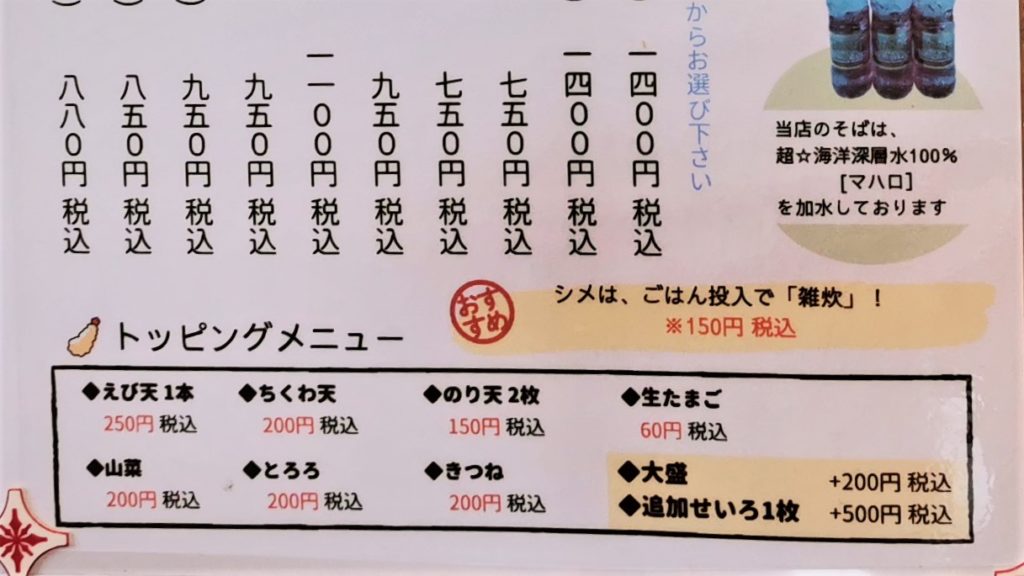 からお選び下さい
一四〇〇円 税込
一四〇〇円 税込
七五〇円 税込
七五〇円 税込
九五〇円 税込
一一〇〇円 税込
九五〇円 税込
九五〇円 税込
八五〇円 税込
八八〇円 税込
当店のそばは、
超☆海洋深層水100%
[マハロ]
を加水しております
おすすめ
シメは、ごはん投入で「雑炊」！
※150円 税込
トッピングメニュー
◆えび天 1本
250円 税込
◆ちくわ天
200円 税込
◆のり天 2枚
150円 税込
◆生たまご
60円 税込
◆山菜
200円 税込
◆とろろ
200円 税込
◆きつね
200円 税込
◆大盛 +200円 税込
◆追加せいろ1枚 +500円 税込